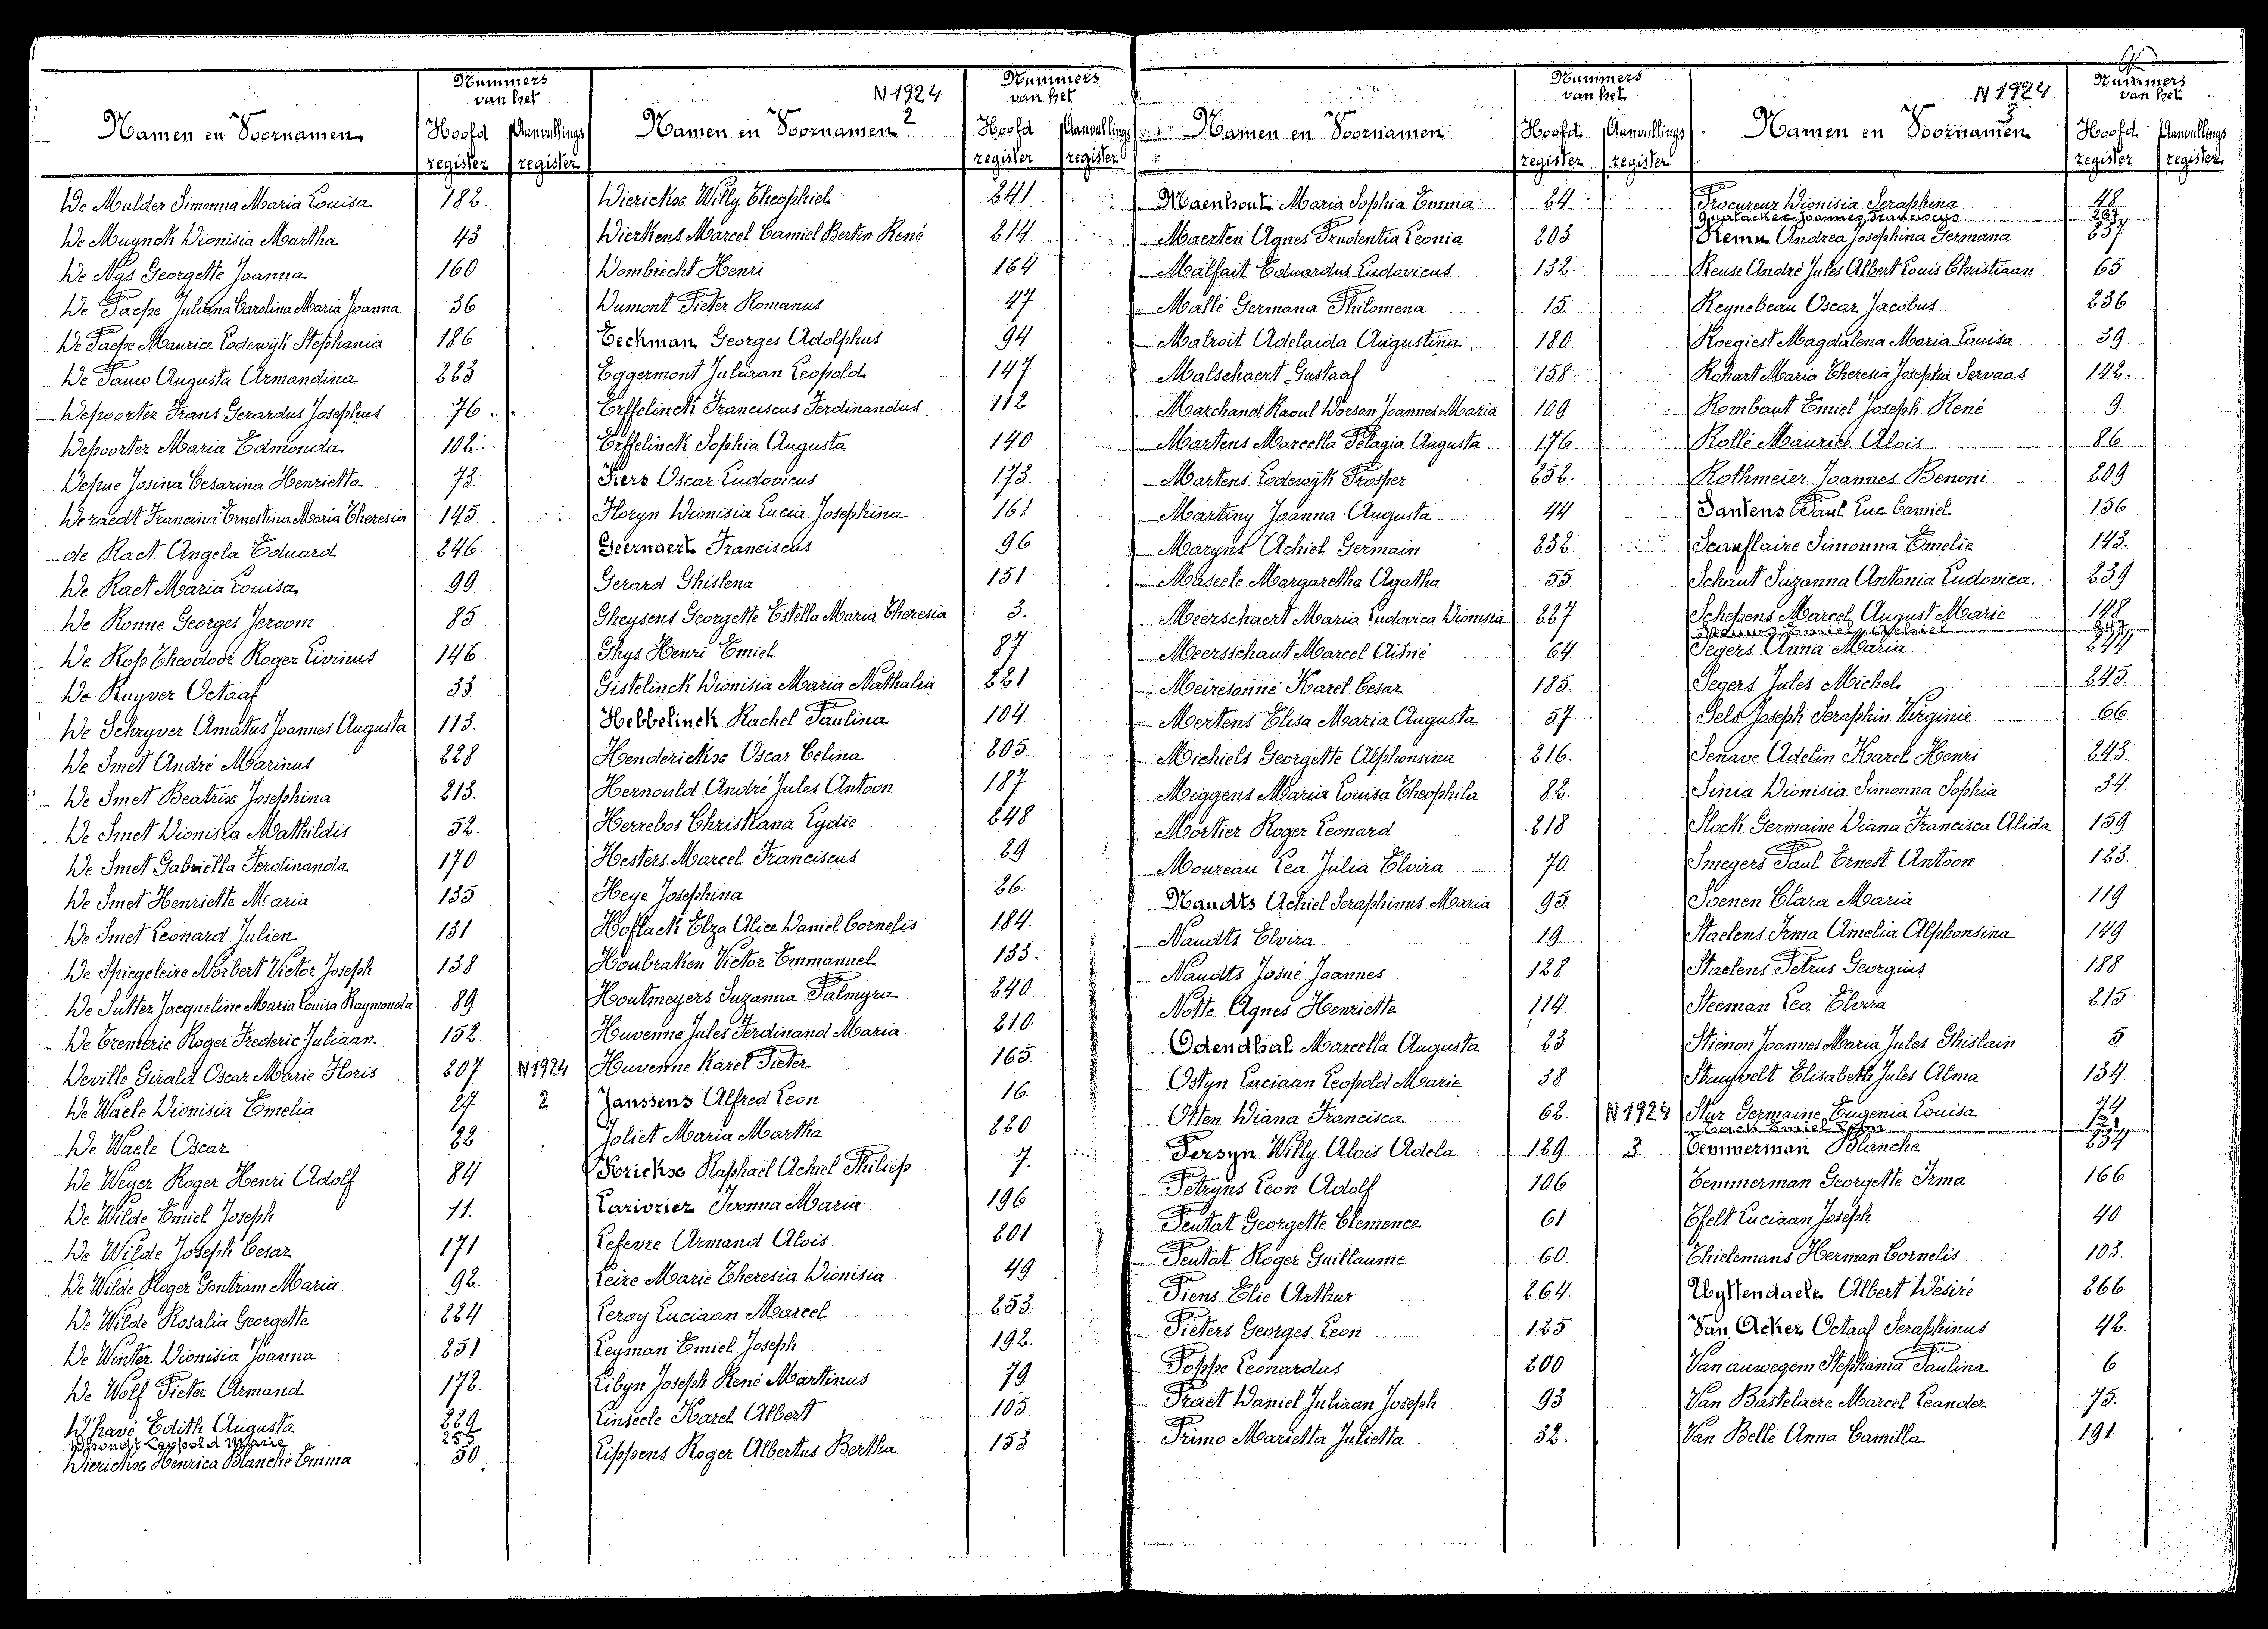 Namen en Voornamen
Nummers van het
Hoofd register
Aanvullings register
De Mulder Simonna Maria Louisa 182.
De Muynck Dionisia Martha 43
De Nys Georgette Joanna 160
De Paepe Juliana Carolina Maria Joanna 36
De Paepe Maurice Lodewyk Stephania 186
De Pauw Augusta Armandina 223
Depoorter Frans Gerardus Josephus 76
Depoorter Maria Edmonda 102
Depue Josina Cesarina Henrietta 73.
Deraedt Francina Ernestina Maria Theresia 145
de Raet Angela Eduard 246.
De Raet Maria Louisa 99
De Ronne Georges Jeroom 85
De Rop Theodoor Roger Livinus 146
De Ruyver Octaaf 33
De Schryver Amatus Joannes Augusta 113.
De Smet André Marinus 228
De Smet Beatrix Josephina 213.
De Smet Dionisia Mathildis 52.
De Smet Gabriella Ferdinanda 170
De Smet Henriette Maria 135
De Smet Leonard Julien 131
De Spiegeleire Norbert Victor Joseph 138
De Sutter Jacqueline Maria Louisa Raymonda 89
De Tremerie Roger Frederic Juliaan 152.
Deville Girald Oscar Marie Floris 207 N1924
De Waele Dionisia Emelia 27 2
De Waele Oscar 22
De Weyer Roger Henri Adolf 84
De Wilde Emiel Joseph 11.
De Wilde Joseph Cesar 171
De Wilde Roger Gontram Maria 92.
De Wilde Rosalia Georgette 224
De Winter Dionisia Joanna 251
De Wolf Pieter Armand 172.
D'havé Edith Augusta 229
Dhondt Leopold Marie 255
Dierickx Henrica Blanche Emma 50
N 1924
2
Namen en Voornamen
Nummers van het
Hoofd register
Aanvullings register
Dierickx Willy Theophiel 241
Dierkens Marcel Camiel Bertin René 214
Dombrecht Henri 164
Dumont Pieter Romanus 47
Eeckman Georges Adolphus 94
Eggermont Juliaan Leopold 147
Erffelinck Franciscus Ferdinandus 112
Erffelinck Sophia Augusta 140
Fiers Oscar Ludovicus 173.
Floryn Dionisia Lucia Josephina 161
Geernaert Franciscus 96
Gerard Ghislena 151
Gheysens Georgette Estella Maria Theresia 3.
Ghys Henri Emiel 87
Gistelinck Dionisia Maria Nathalia 221
Hebbelinck Rachel Paulina 104
Henderickx Oscar Celina 205.
Hernould André Jules Antoon 187
Herrebos Christiana Lydie 248
Hesters Marcel Franciscus 29
Heye Josephina 26.
Hoflack Elza Alice Daniel Cornelis 184.
Houbraken Victor Emmanuel 133.
Houtmeyers Suzanna Palmyra 240
Huvenne Jules Ferdinand Maria 210.
Huvenne Karel Pieter 165.
Janssens Alfred Leon 16.
Joliet Maria Martha 220
Krickx Raphaël Achiel Philiep 7.
Larivriez Ivonna Maria 196
Lefevre Armand Alois 201
Leire Marie Theresia Dionisia 49
Leroy Luciaan Marcel 253.
Leyman Emiel Joseph 192.
Libyn Joseph René Martinus 79
Linseele Karel Albert 105
Lippens Roger Albertus Bertha 153
Namen en Voornamen
Nummers van het
Hoofd register
Aanvullings register
Maenhout Maria Sophia Emma 24
Maerten Agnes Prudentia Leonia 203
Malfait Eduardus Ludovicus 132.
Mallé Germana Philomena 15.
Malroit Adelaida Augustina 180
Malschaert Gustaaf 158
Marchand Raoul Dorsan Joannes Maria 109
Martens Marcella Pelagia Augusta 176
Martens Lodewyk Prosper 252.
Martiny Joanna Augusta 44
Maryns Achiel Germain 232.
Maseele Margaretha Agatha 55
Meerschaert Maria Ludovica Dionisia 227
Meersschaut Marcel Aimé 64
Meiresonne Karel Cesar 185.
Mertens Elisa Maria Augusta 57
Michiels Georgette Alphonsina 216.
Miggens Maria Louisa Theophila 82.
Mortier Roger Leonard 218
Moureau Lea Julia Elvira 70.
Naudts Achiel Seraphinus Maria 95.
Naudts Elvira 19
Naudts Josué Joannes 128
Notte Agnes Henriette 114.
Odendhal Marcella Augusta 23
Ostyn Luciaan Leopold Marie 38
Otten Diana Francisca 62. N1924
Persyn Willy Alois Adela 129 3
Petryns Leon Adolf 106
Peutat Georgette Clemence 61
Peutat Roger Guillaume 60.
Piens Elie Arthur 264.
Pieters Georges Leon 125
Poppe Leonardus 200
Praet Daniel Juliaan Joseph 93
Primo Marietta Julietta 32.
N 1924
3
Namen en Voornamen
Nummers van het
Hoofd register
Aanvullings register
Procureur Dionisia Seraphina 48
Quatacker Joannes Franciscus 267
Remu Andrea Josephina Germana 237
Reuse André Jules Albert Louis Christiaan 65
Reynebeau Oscar Jacobus 236
Roegiest Magdalena Maria Louisa 39
Rohart Maria Theresia Josepha Servaas 142.
Rombaut Emiel Joseph René 9
Rollé Maurice Alois 86
Rothmeier Joannes Benoni 209
Santens Paul Luc Camiel 156
Scauflaire Simonna Emelie 143.
Schaut Suzanna Antonia Ludovica 239
Schepens Marcel August Marie 148
Segers Anna Maria 244
Segers Jules Michel 245.
Sels Joseph Seraphin Virginie 66
Senave Adelin Karel Henri 243.
Sinia Dionisia Simonna Sophia 34.
Slock Germaine Diana Francisca Alida 159
Smeyers Paul Ernest Antoon 123.
Soenen Clara Maria 119
Staelens Irma Amelia Alphonsina 149
Staelens Petrus Georgius 188
Steeman Lea Elvira 215
Stienon Joannes Maria Jules Ghislain 5
Struyvelt Elisabeth Jules Alma 134.
Stur Germaine Eugenia Louisa 74
Tack Emiel Leon 121
Temmerman Blanche 234
Temmerman Georgette Irma 166
Tfelt Luciaan Joseph 40
Thielemans Herman Cornelis 103.
Uyttendaele Albert Désiré 266
Van Acker Octaaf Seraphinus 42.
Van auwegem Stephania Paulina 6
Van Bastelaere Marcel Leander 75.
Van Belle Anna Camilla 191